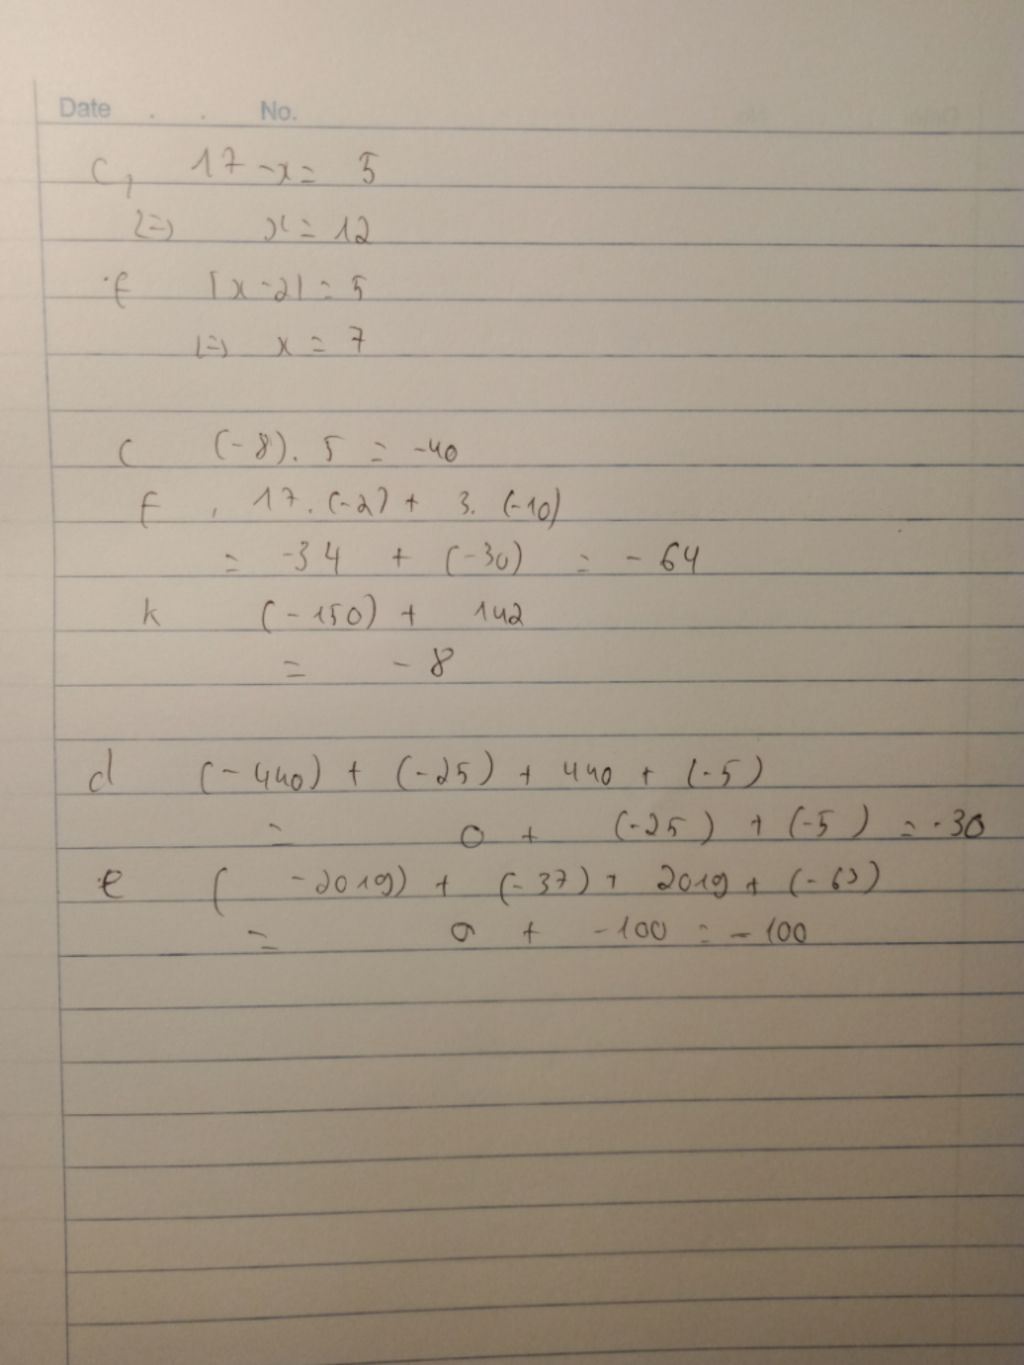 Date . . No.
c, 17 - x = 5
<=> x = 12
f |x - 2| = 5
<=> x = 7
c (-8). 5 = -40
f , 17. (-2) + 3. (-10)
= -34 + (-30) = - 64
k (-150) + 142
= - 8
d (-440) + (-25) + 440 + (-5)
= 0 + (-25) + (-5) = -30
e ( -2019) + (-37) + 2019 + (-63)
= 0 + -100 = - 100